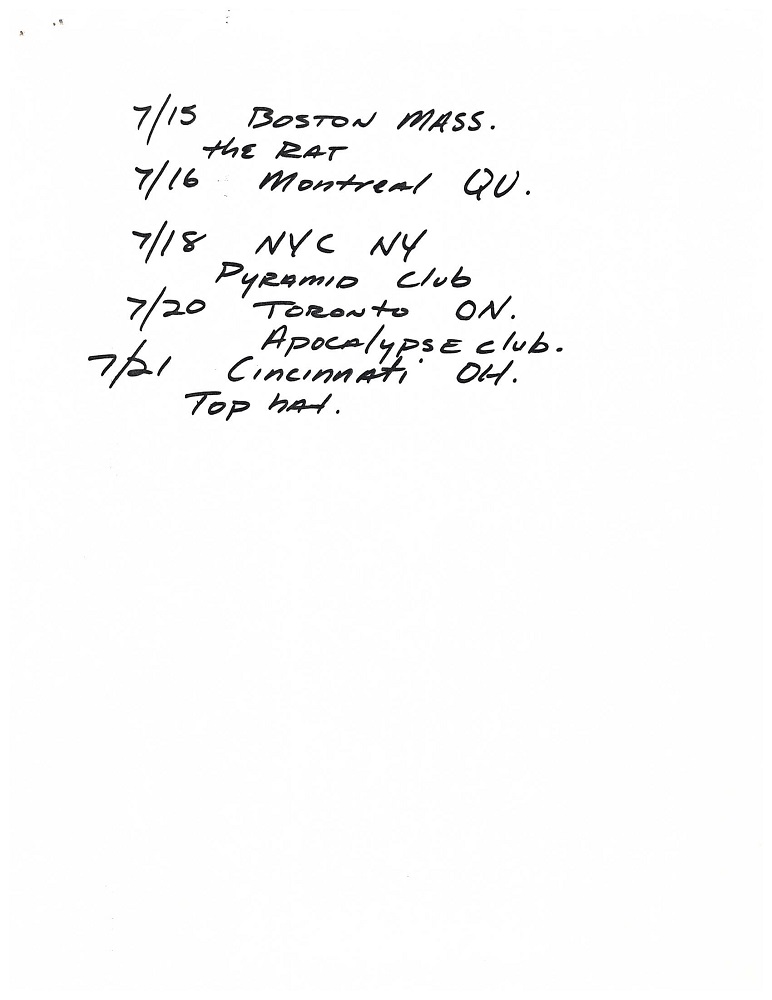 7/15 BOSTON MASS.
the RAT
7/16 Montreal QU.
7/18 NYC NY
PYRAMID Club
7/20 TORONTO ON.
APOCALYPSE club.
7/21 CincinnAti OH.
Top hat.